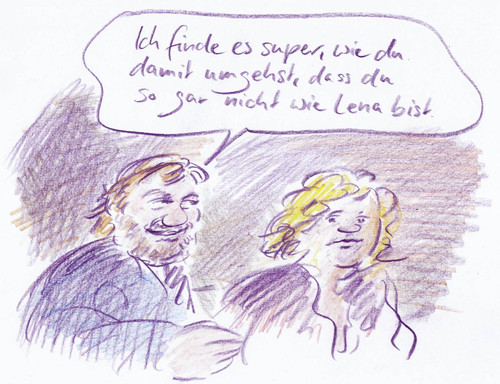 Ich finde es super, wie du
damit umgehst, dass du
so gar nicht wie Lena bist.